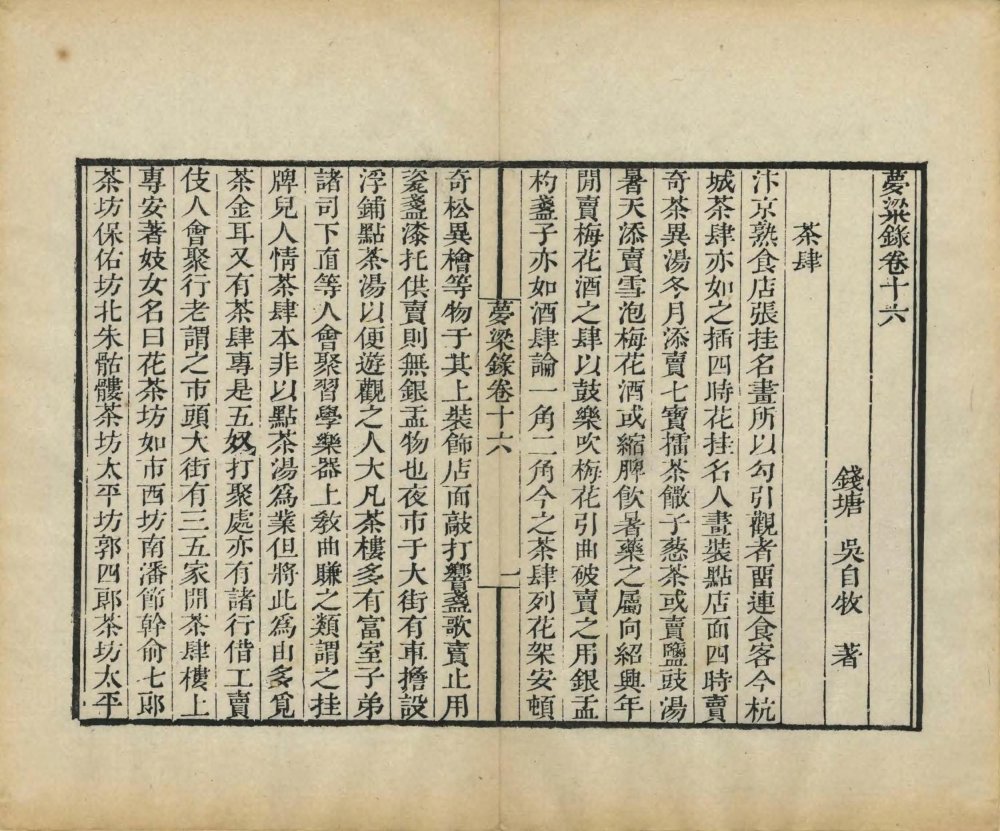 夢粱錄卷十六
錢塘 吳自牧 著
茶肆
汴京熟食店張挂名畫所以勾引觀者畱連食客今杭
城茶肆亦如之插四時花挂名人畫裝點店面四時賣
奇茶異湯冬月添賣七寶擂茶饊子蔥茶或賣鹽豉湯
暑天添賣雪泡梅花酒或縮脾飲暑藥之屬向紹興年
閒賣梅花酒之肆以鼓樂吹梅花引曲破賣之用銀盂
杓盞子亦如酒肆論一角二角今之茶肆列花架安頓
夢粱錄卷十六
一
奇松異檜等物于其上裝飾店面敲打響盞歌賣止用
瓷盞漆托供賣則無銀盂物也夜市于大街有車擔設
浮鋪點茶湯以便遊觀之人大凡茶樓多有富室子弟
諸司下直等人會聚習學樂器上敎曲賺之類謂之挂
牌兒人情茶肆本非以點茶湯爲業但將此爲由多覓
茶金耳又有茶肆專是五奴打聚處亦有諸行借工賣
伎人會聚行老謂之市頭大街有三五家開茶肆樓上
專安著妓女名曰花茶坊如市西坊南潘節幹俞七郎
茶坊保佑坊北朱骷髏茶坊太平坊郭四郎茶坊太平